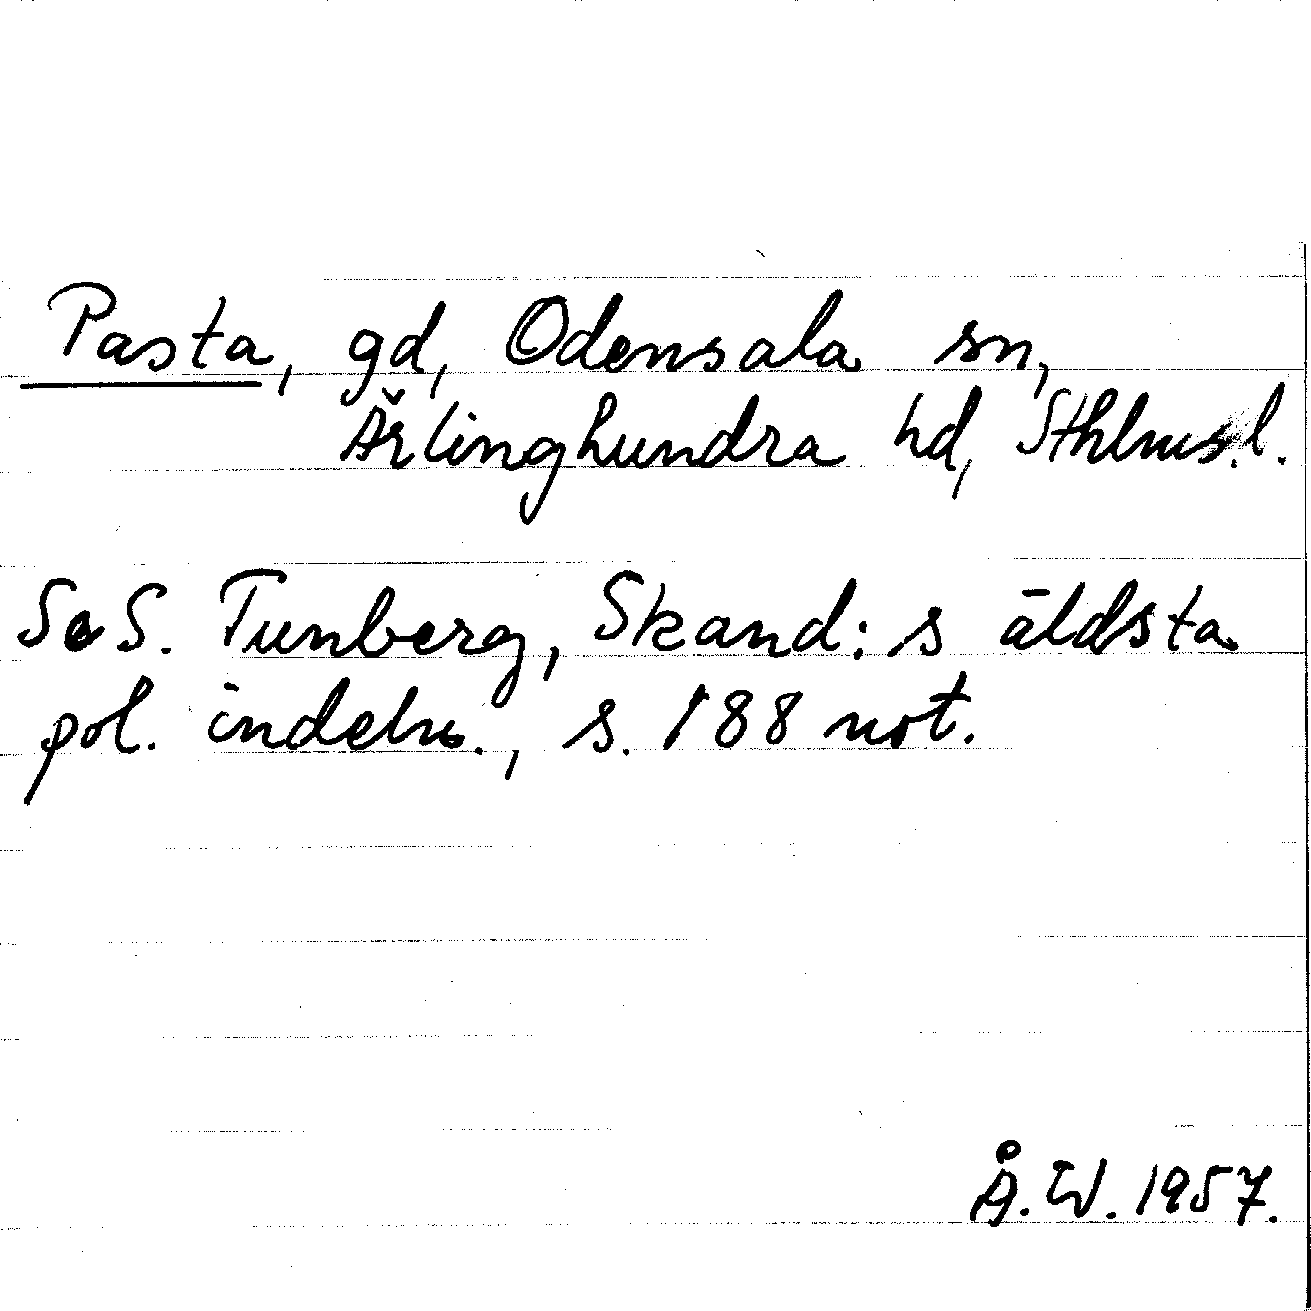 Pasta, gd, Odensala sn,
Ärlinghundra hd, Sthlms.l.
Se S. Tunberg, Skand:s äldsta
pol. indeln., s. 188 not.
Å.W. 1957.